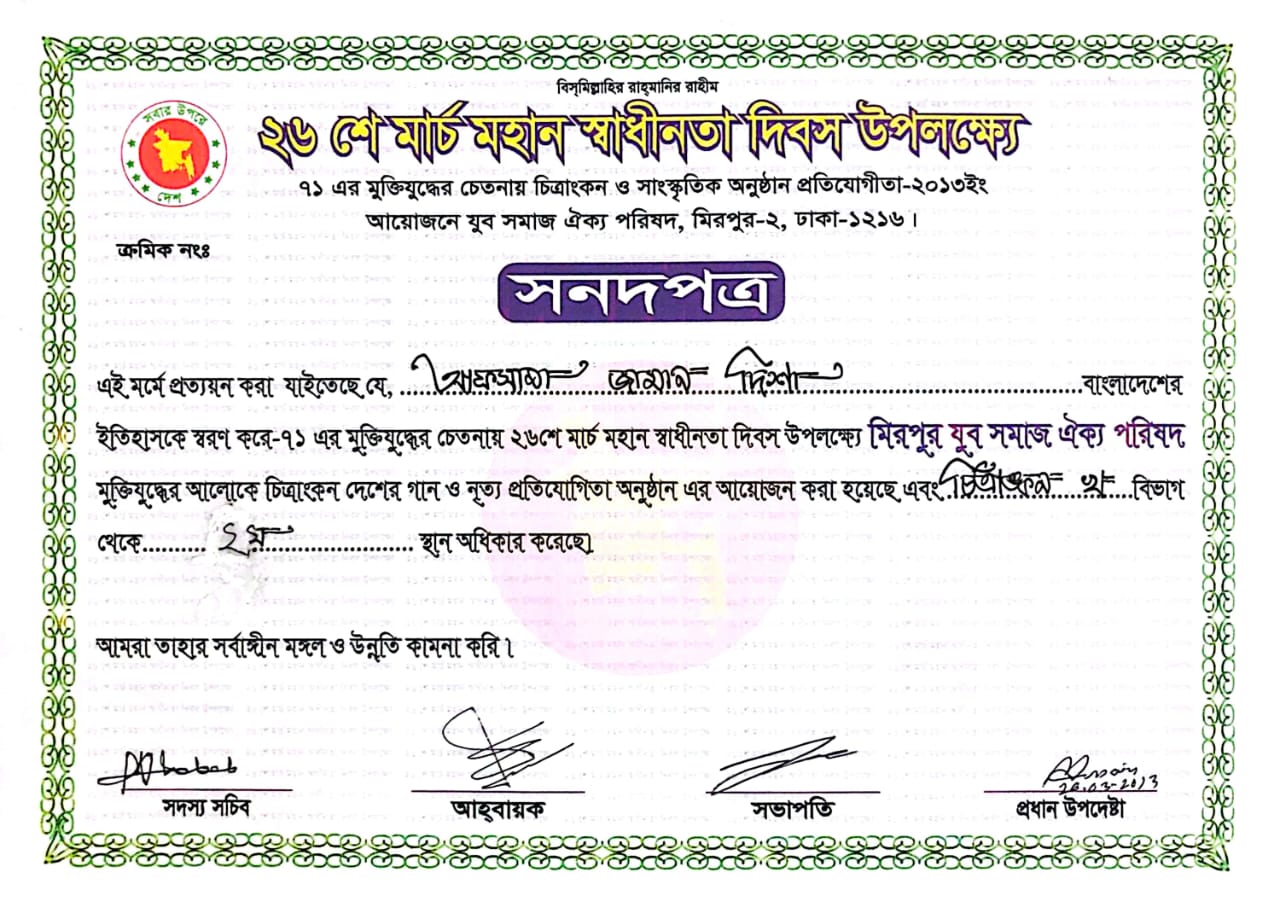 বিস্‌মিল্লাহির রাহ্‌মানির রাহীম
সবার উপরে
দেশ
২৬ শে মার্চ মহান স্বাধীনতা দিবস উপলক্ষ্যে
৭১ এর মুক্তিযুদ্ধের চেতনায় চিত্রাংকন ও সাংস্কৃতিক অনুষ্ঠান প্রতিযোগীতা-২০১৩ইং
আয়োজনে যুব সমাজ ঐক্য পরিষদ, মিরপুর-২, ঢাকা-১২১৬।
ক্রমিক নংঃ
সনদপত্র
এই মর্মে প্রত্যয়ন করা যাইতেছে যে, .......... জামান দিশা ..........বাংলাদেশের
ইতিহাসকে স্বরণ করে-৭১ এর মুক্তিযুদ্ধের চেতনায় ২৬শে মার্চ মহান স্বাধীনতা দিবস উপলক্ষ্যে মিরপুর যুব সমাজ ঐক্য পরিষদ
মুক্তিযুদ্ধের আলোকে চিত্রাংকন দেশের গান ও নৃত্য প্রতিযোগিতা অনুষ্ঠান এর আয়োজন করা হয়েছে এবং চিত্রাঙ্কন খ বিভাগ
থেকে.......... ২য় .......... স্থান অধিকার করেছে।
আমরা তাহার সর্বাঙ্গীন মঙ্গল ও উন্নতি কামনা করি।
26.03-2013
সদস্য সচিব আহ্‌বায়ক সভাপতি প্রধান উপদেষ্টা